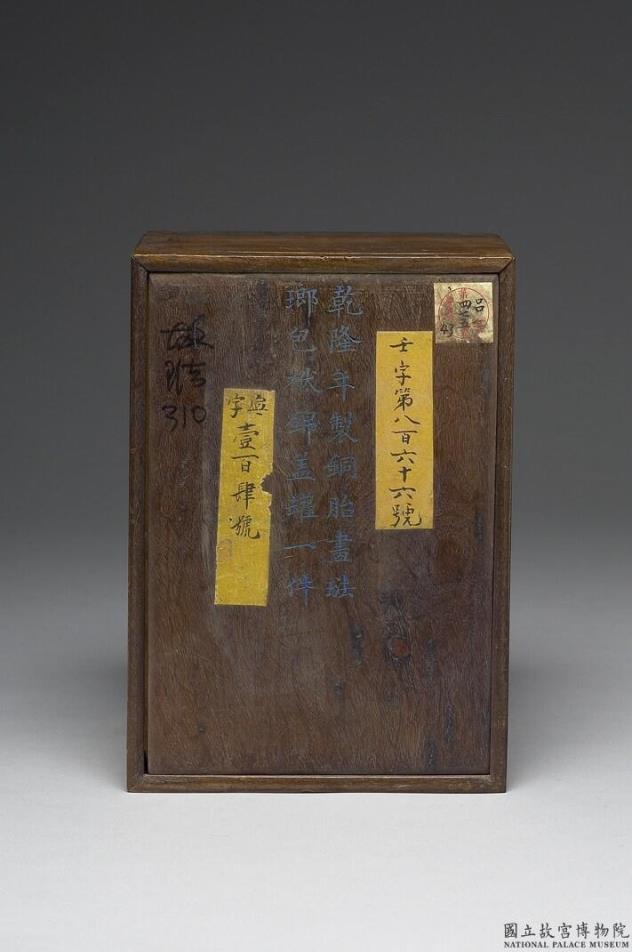 呂
壬字第八百六十六號
乾隆年製銅胎畫琺
瑯包袱錦盖罐一件
字壹百肆號
故琺
310
國立故宮博物院
NATIONAL PALACE MUSEUM